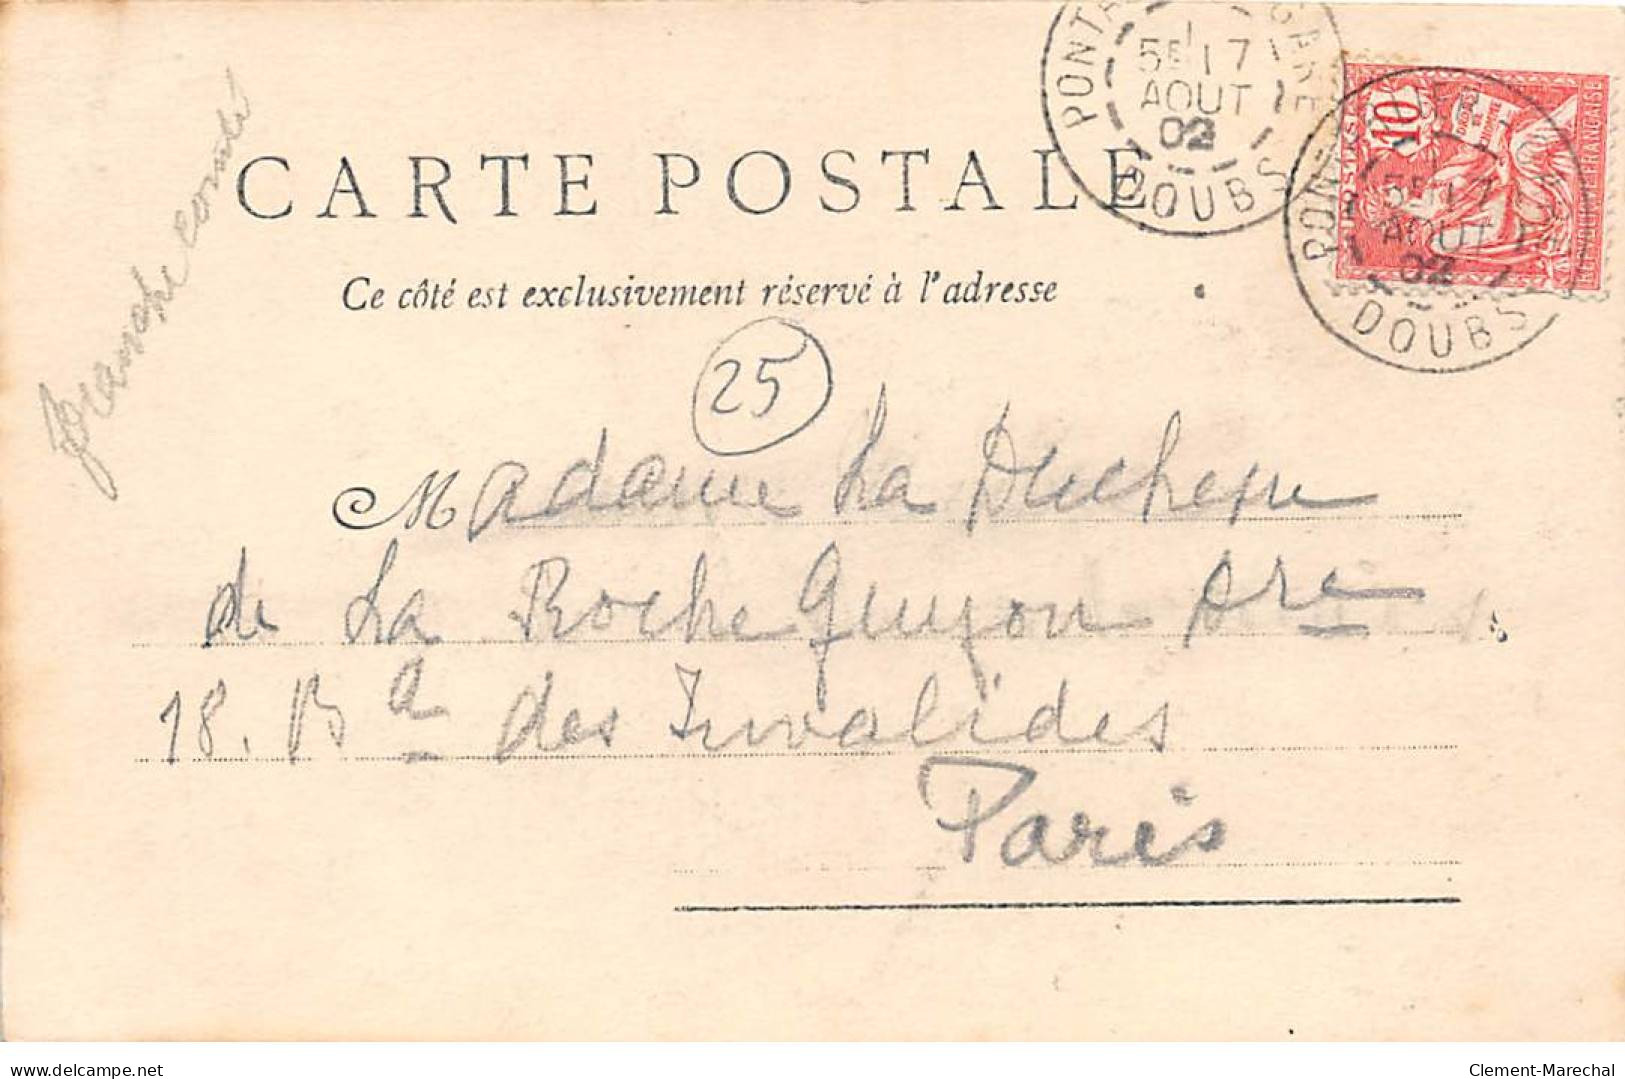 PONTA GARE
5E 17
AOUT
02
DOUBS
10
POSTES
DROITS DE L'HOMME
REPUBLIQUE FRANÇAISE
5E 17
AOUT
02
DOUBS
CARTE POSTALE
Ce côté est exclusivement réservé à l'adresse
Franche comté
25
Madame La Duchesse
de La Roche Guyon Dre
18. Bd des Invalides
Paris
delcampe.net
Clement-Marechal